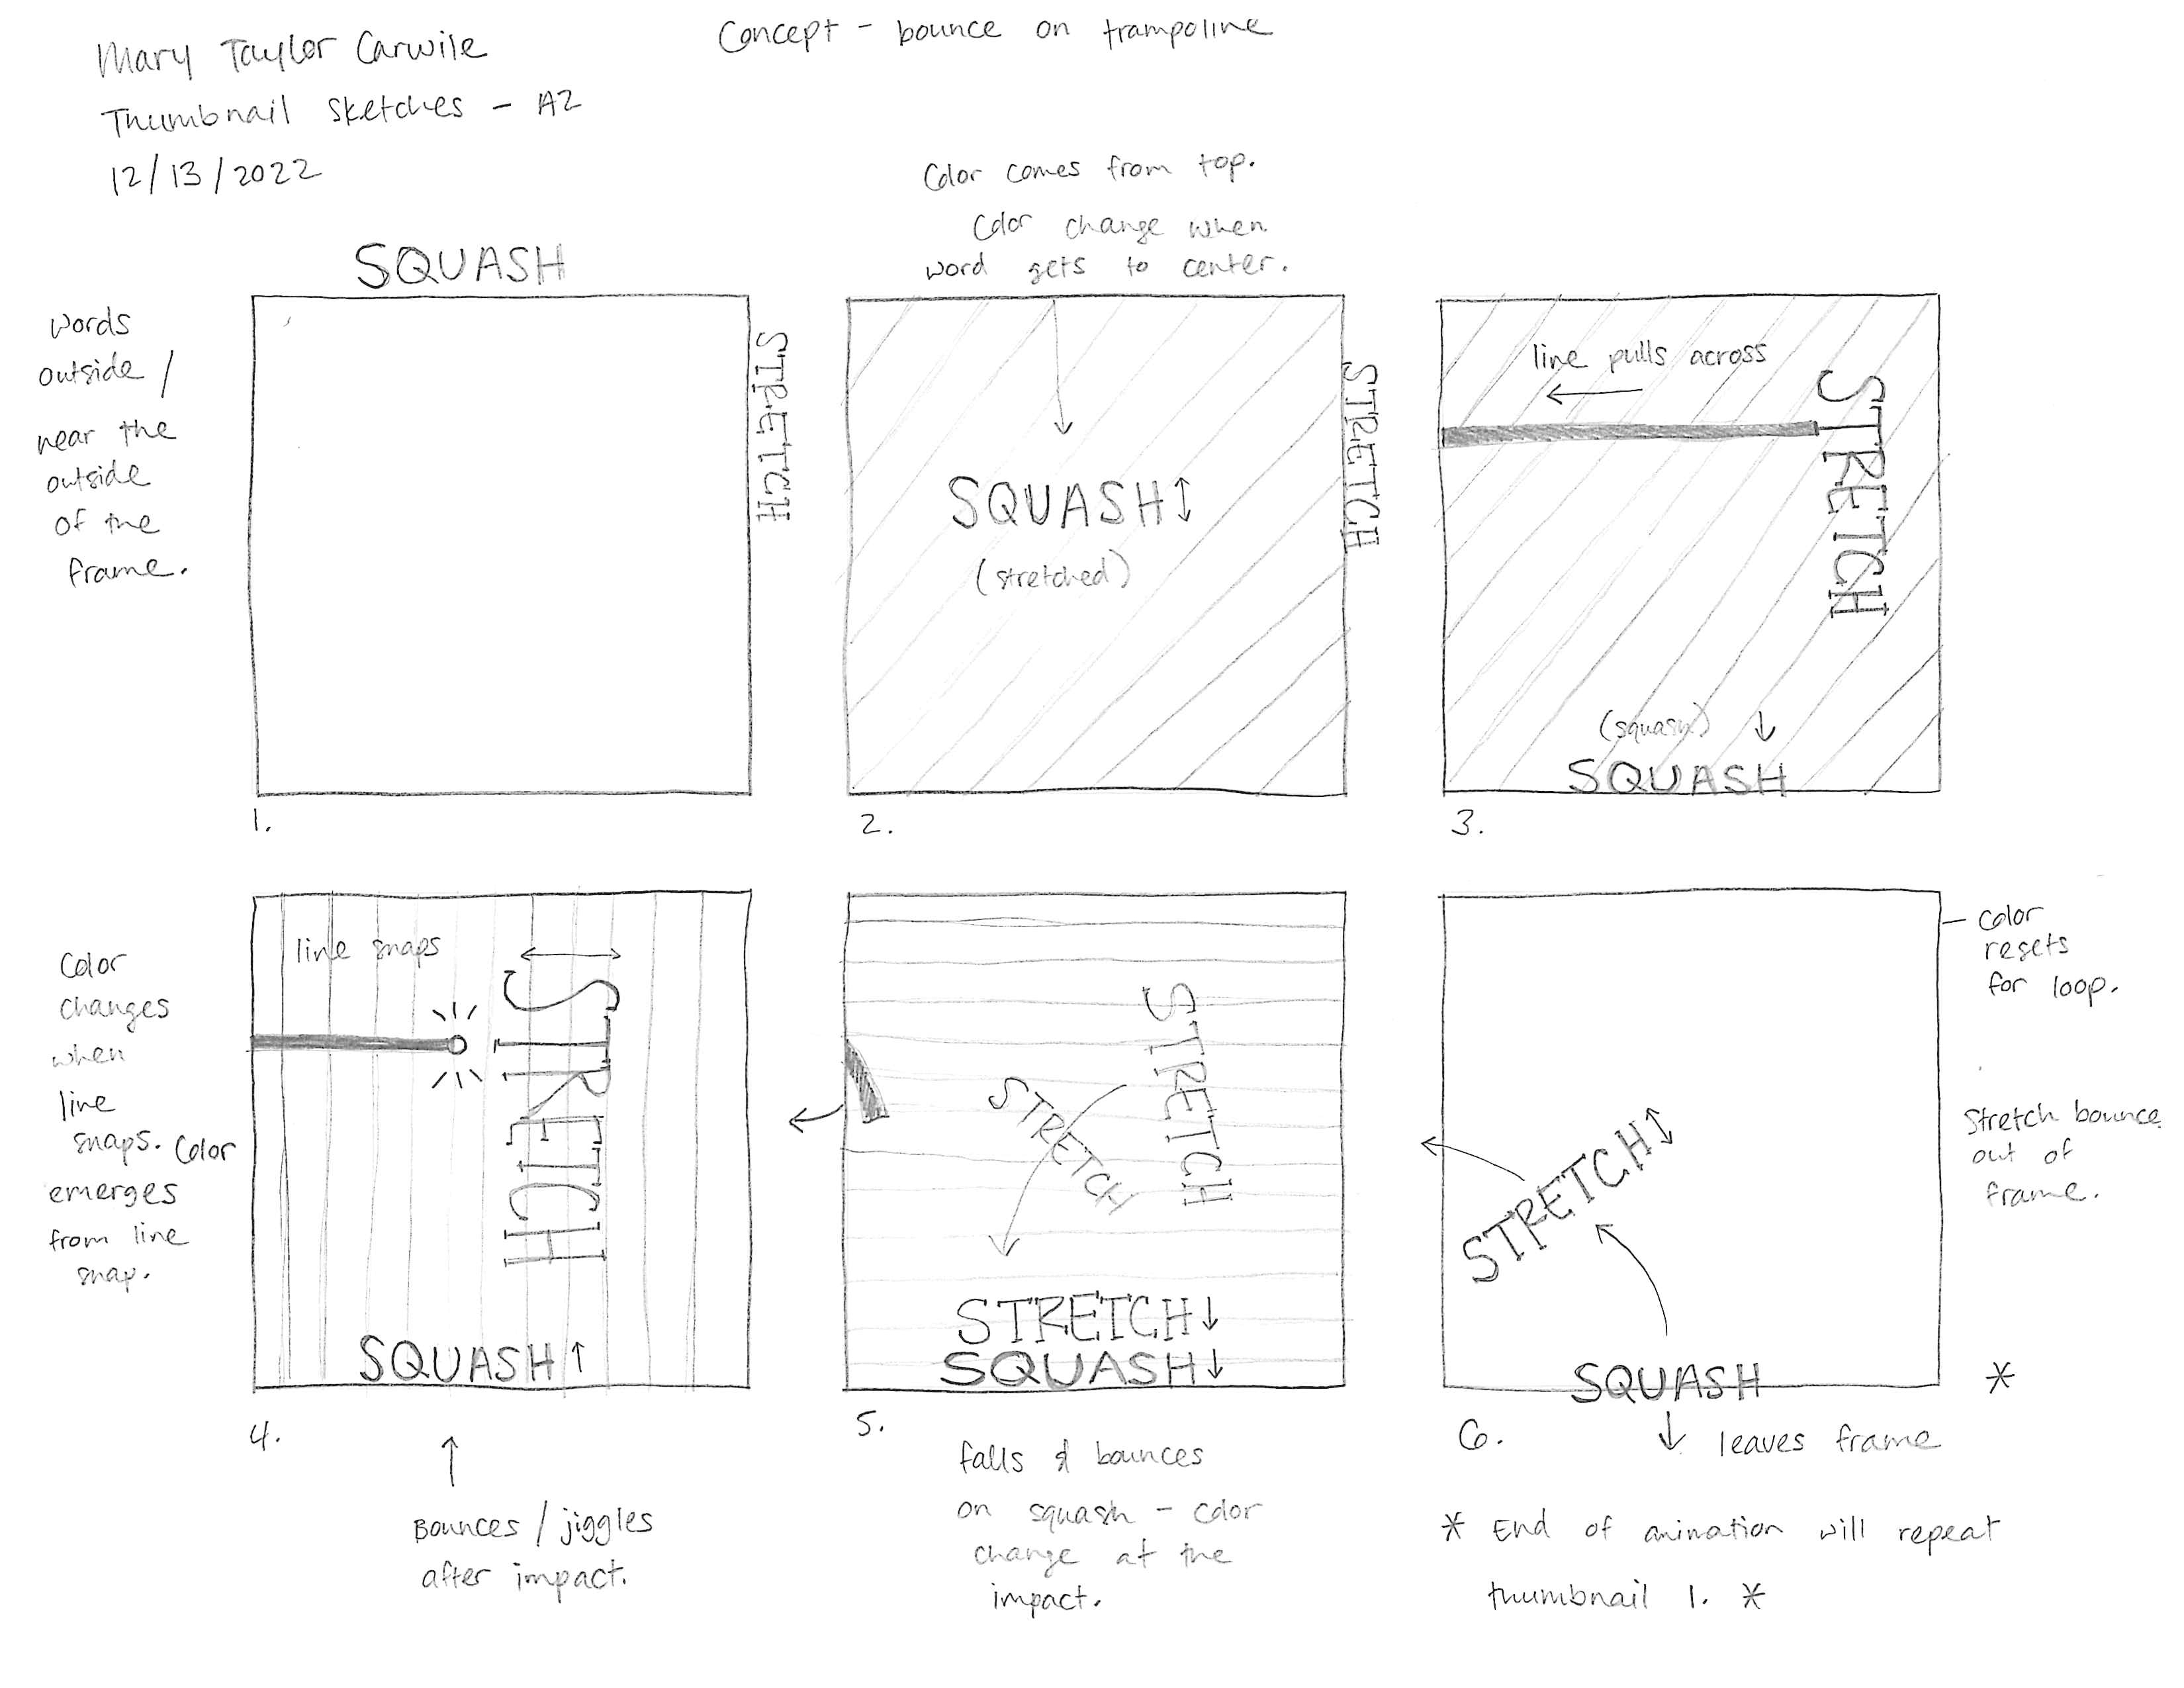 Mary Taylor Carwile
Thumbnail Sketches - A2
12/13/2022
Concept - bounce on trampoline
words
outside /
near the
outside
of the
frame.
SQUASH
STRETCH
1.
Color comes from top.
Color change when
word gets to center.
SQUASH
(stretched)
STRETCH
2.
line pulls across
STRETCH
(squash)
SQUASH
3.
Color
changes
when
line
snaps. Color
emerges
from line
snap.
line snaps
STRETCH
SQUASH
4.
Bounces / jiggles
after impact.
STRETCH
STRETCH
STRETCH
SQUASH
5.
falls & bounces
on squash - color
change at the
impact.
Color
resets
for loop.
Stretch bounce
out of
frame.
STRETCH
SQUASH
*
6.
leaves frame
* End of animation will repeat
thumbnail 1. *